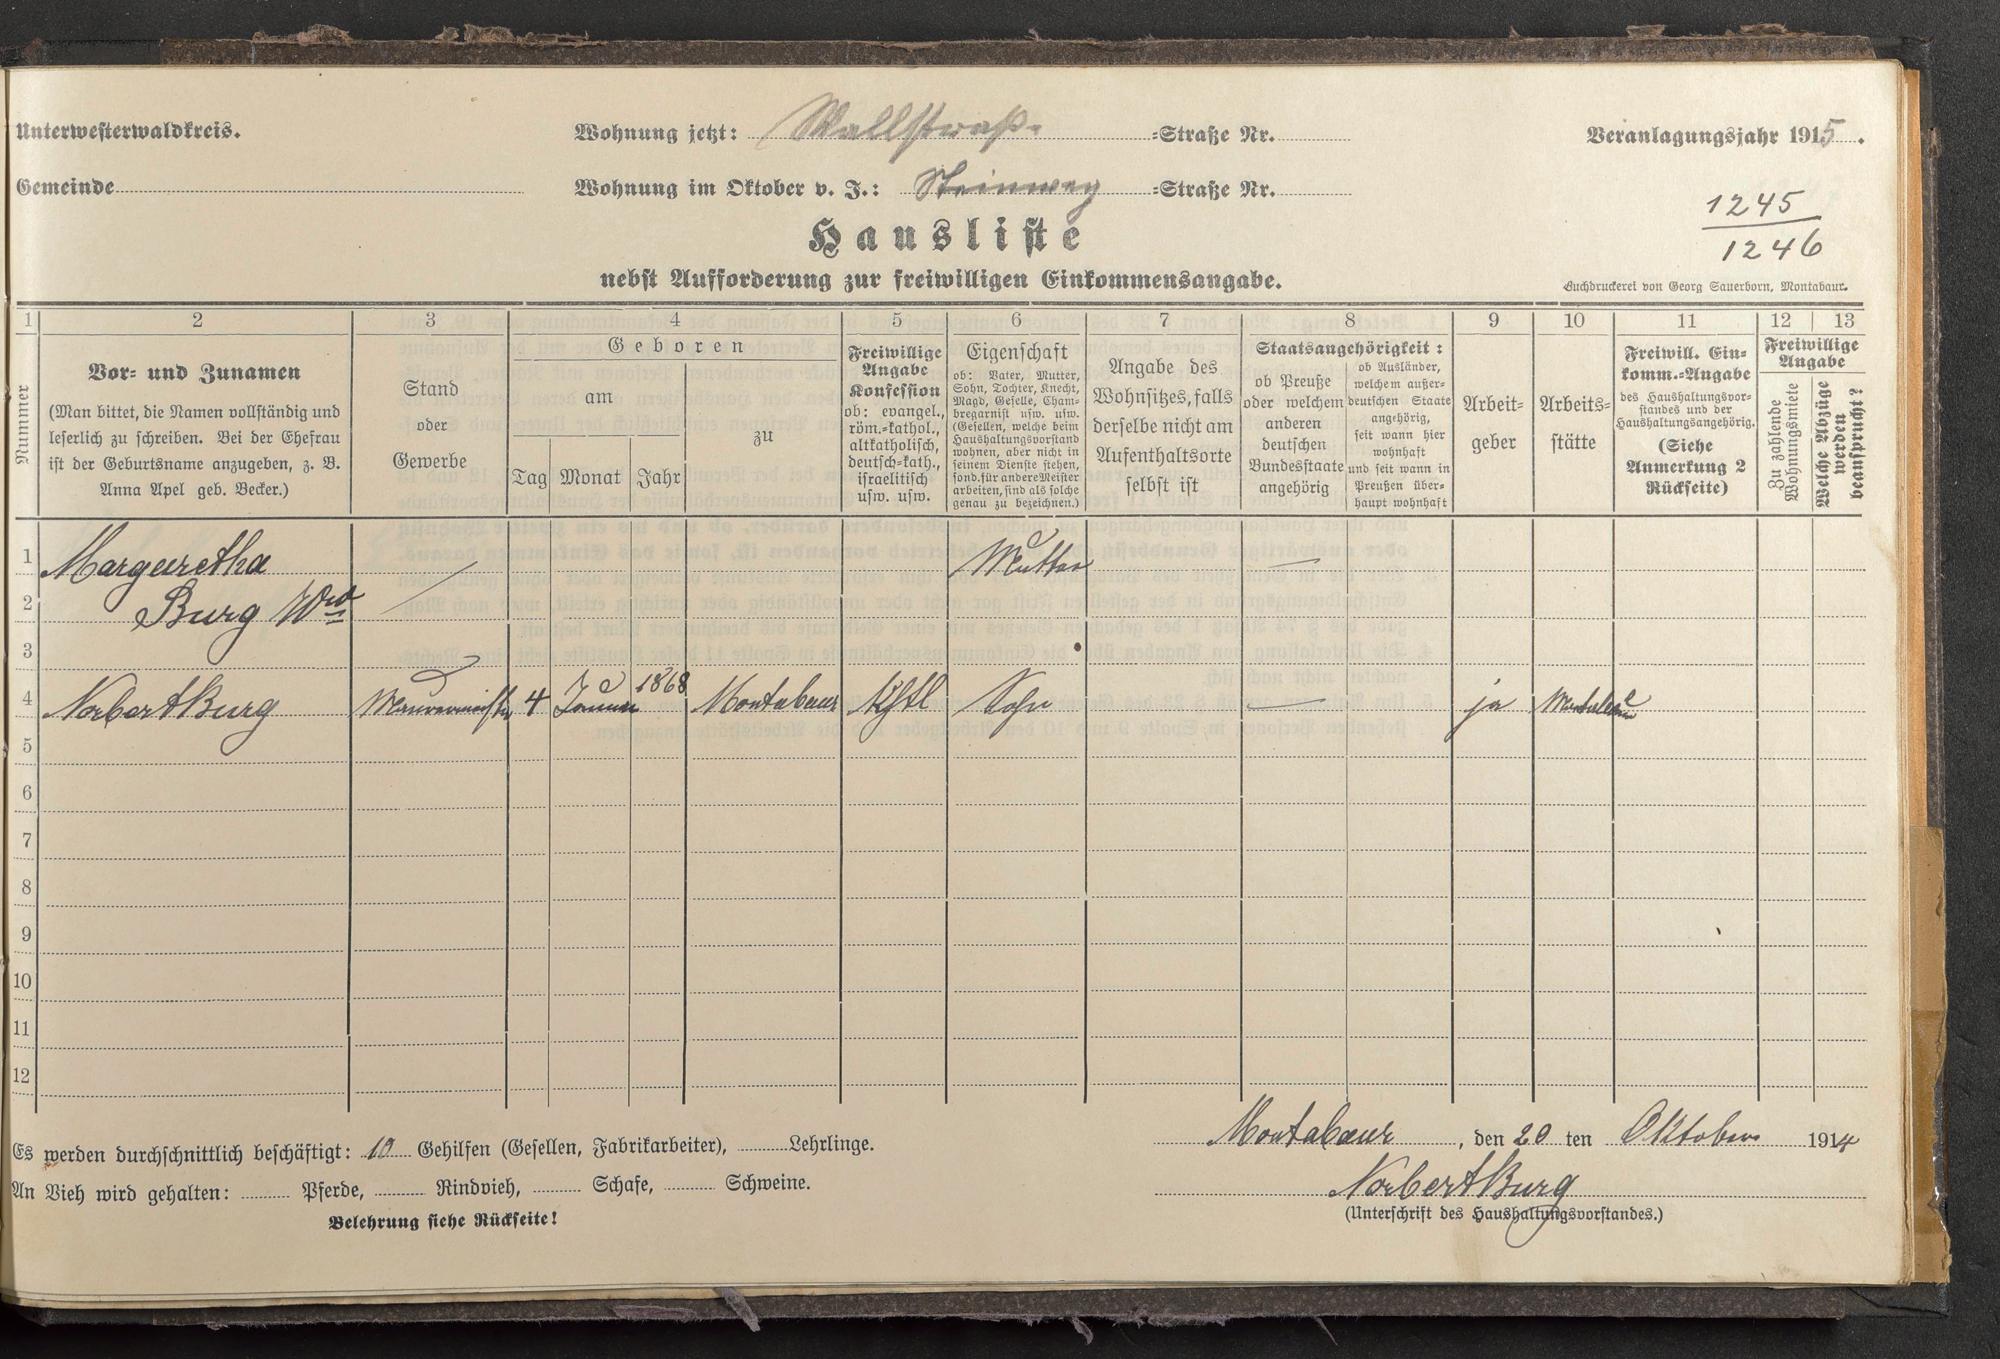 Unterwesterwaldkreis.
Wohnung jetzt: Wallstraß. =Straße Nr.
Veranlagungsjahr 1915.
Gemeinde
Wohnung im Oktober v. J.: Steinweg =Straße Nr.
1245
1246
Hausliste
nebst Aufforderung zur freiwilligen Einkommensangabe.
Buchdruckerei von Georg Sauerborn, Montabaur.
1 2 3 4 5 6 7 8 9 10 11 12 13
Nummer
Vor- und Zunamen
(Man bittet, die Namen vollständig und
leserlich zu schreiben. Bei der Ehefrau
ist der Geburtsname anzugeben, z. B.
Anna Apel geb. Becker.)
Stand
oder
Gewerbe
Geboren
am
Tag Monat Jahr
zu
Freiwillige
Angabe
Konfession
ob: evangel.,
röm.-kathol.,
altkatholisch,
deutsch-kath.,
israelitisch
usw. usw.
Eigenschaft
ob: Vater, Mutter,
Sohn, Tochter, Knecht,
Magd, Geselle, Cham-
bregarnist usw. usw.
(Gesellen, welche beim
Haushaltungsvorstand
wohnen, aber nicht in
seinem Dienste stehen,
sond. für andere Meister
arbeiten, sind als solche
genau zu bezeichnen.)
Angabe des
Wohnsitzes, falls
derselbe nicht am
Aufenthaltsorte
selbst ist
Staatsangehörigkeit:
ob Preuße
oder welchem
anderen
deutschen
Bundesstaate
angehörig
ob Ausländer,
welchem außer-
deutschen Staate
angehörig,
seit wann hier
wohnhaft
und seit wann in
Preußen über-
haupt wohnhaft
Arbeit-
geber
Arbeits-
stätte
Freiwill. Ein-
komm.-Angabe
des Haushaltungsvor-
standes und der
Haushaltungsangehörig.
(Siehe
Anmerkung 2
Rückseite)
Freiwillige
Angabe
Zu zahlende
Wohnungsmiete
Welche Abzüge
werden
beansprucht?
1 Margaretha Mutter —
2 Burg Wwe
3
4 Norbert Burg Maurermeister 4 Januar 1868 Montabaur Kthl Sohn — ja Montabaur
5
6
7
8
9
10
11
12
Es werden durchschnittlich beschäftigt: 10 Gehilfen (Gesellen, Fabrikarbeiter), Lehrlinge.
Montabaur, den 20 ten Oktober 1914
An Vieh wird gehalten: Pferde, Rindvieh, Schafe, Schweine.
Norbert Burg
Belehrung siehe Rückseite!
(Unterschrift des Haushaltungsvorstandes.)